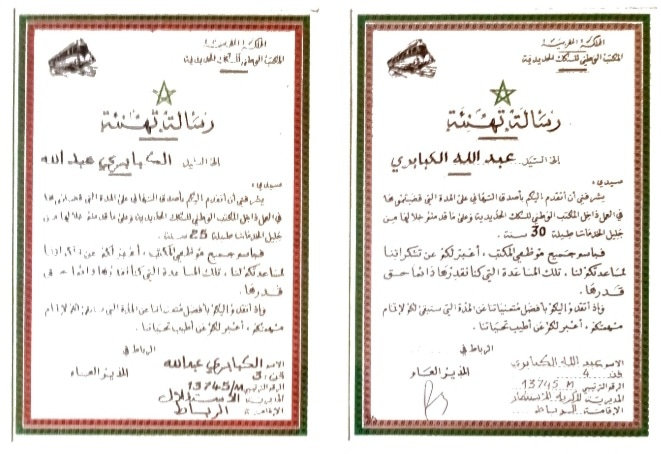 المملكة المغربية
المكتب الوطني للسكك الحديدية
رسالة تهنئة
إلى السيد الكبابري عبد الله
سيدي،
يشرفني أن أتقدم إليكم بأصدق التهاني على المدة التي قضيتموها
في العمل داخل المكتب الوطني للسكك الحديدية وعلى ما قدمتموه خلالها من
جليل الخدمات طيلة 25 سنة.
فباسم جميع موظفي المكتب، أعبر لكم عن تشكراتنا
لمساعدتكم لنا، تلك المساعدة التي كنا نقدرها دائما حق
قدرها.
وإذ أتقدم إليكم بأفضل متمنياتنا عن المدة التي ستبقى لكم لإتمام
مهمتكم، أعبر لكم عن أطيب تحياتنا.
الرباط في
المدير العام
الاسم الكبابري عبدالله
13745/M الرقم الترتيبي
المديرية الاستغلال
الإقامة الرباط
المملكة المغربية
المكتب الوطني للسكك الحديدية
رسالة تهنئة
إلى السيد عبد الله الكبابري
سيدي،
يشرفني أن أتقدم إليكم بأصدق التهاني على المدة التي قضيتموها
في العمل داخل المكتب الوطني للسكك الحديدية وعلى ما قدمتموه خلالها من
جليل الخدمات طيلة 30 سنة.
فباسم جميع موظفي المكتب، أعبر لكم عن تشكراتنا
لمساعدتكم لنا، تلك المساعدة التي كنا نقدرها دائما حق
قدرها.
وإذ أتقدم إليكم بأفضل متمنياتنا عن المدة التي ستبقى لكم لإتمام
مهمتكم، أعبر لكم عن أطيب تحياتنا.
الرباط في
المدير العام
الاسم عبد الله الكبابري
13745 M الرقم الترتيبي
المديرية
الإقامة الرباط